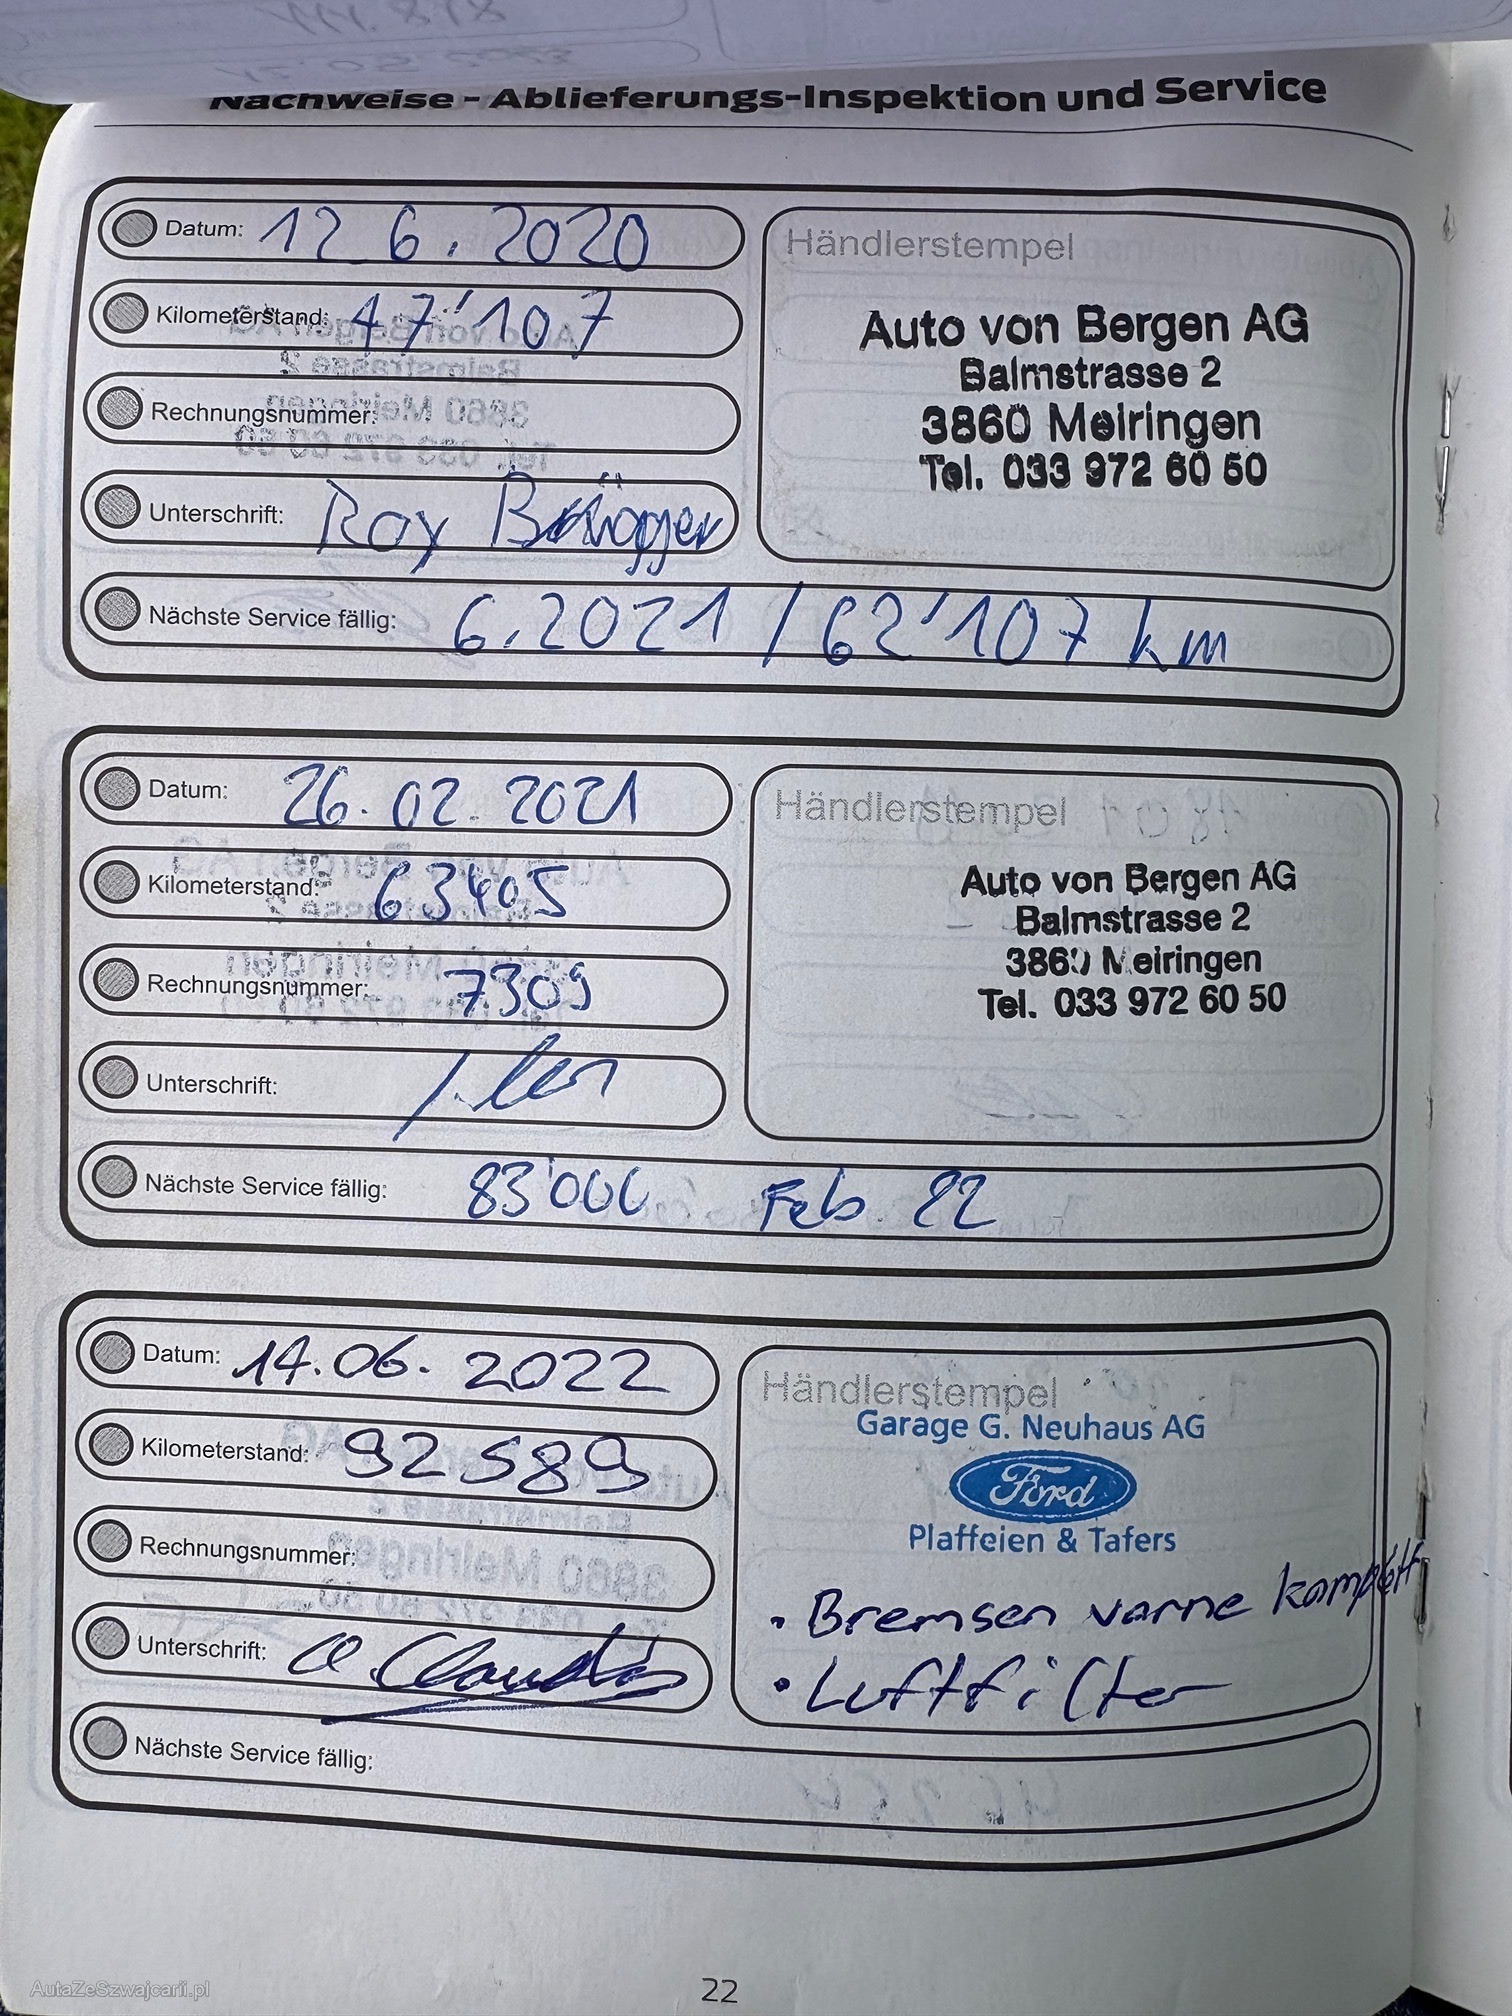 111.878
Nachweise - Ablieferungs-Inspektion und Service
Datum: 12 6. 2020
Kilometerstand: 47'107
Rechnungsnummer:
Unterschrift: Roy Brügger
Nächste Service fällig: 6.2021 / 62'107 km
Händlerstempel
Auto von Bergen AG
Balmstrasse 2
3860 Meiringen
Tel. 033 972 60 50
Datum: 26.02.2021
Kilometerstand: 63405
Rechnungsnummer: 7309
Unterschrift:
Nächste Service fällig: 83'000 Feb. 22
Händlerstempel
Auto von Bergen AG
Balmstrasse 2
3860 Meiringen
Tel. 033 972 60 50
Datum: 14.06.2022
Kilometerstand: 92589
Rechnungsnummer:
Unterschrift:
Nächste Service fällig:
Händlerstempel
Garage G. Neuhaus AG
Ford
Plaffeien & Tafers
• Bremsen vorne komplett
• Luftfilter
22
AutaZeSzwajcarii.pl